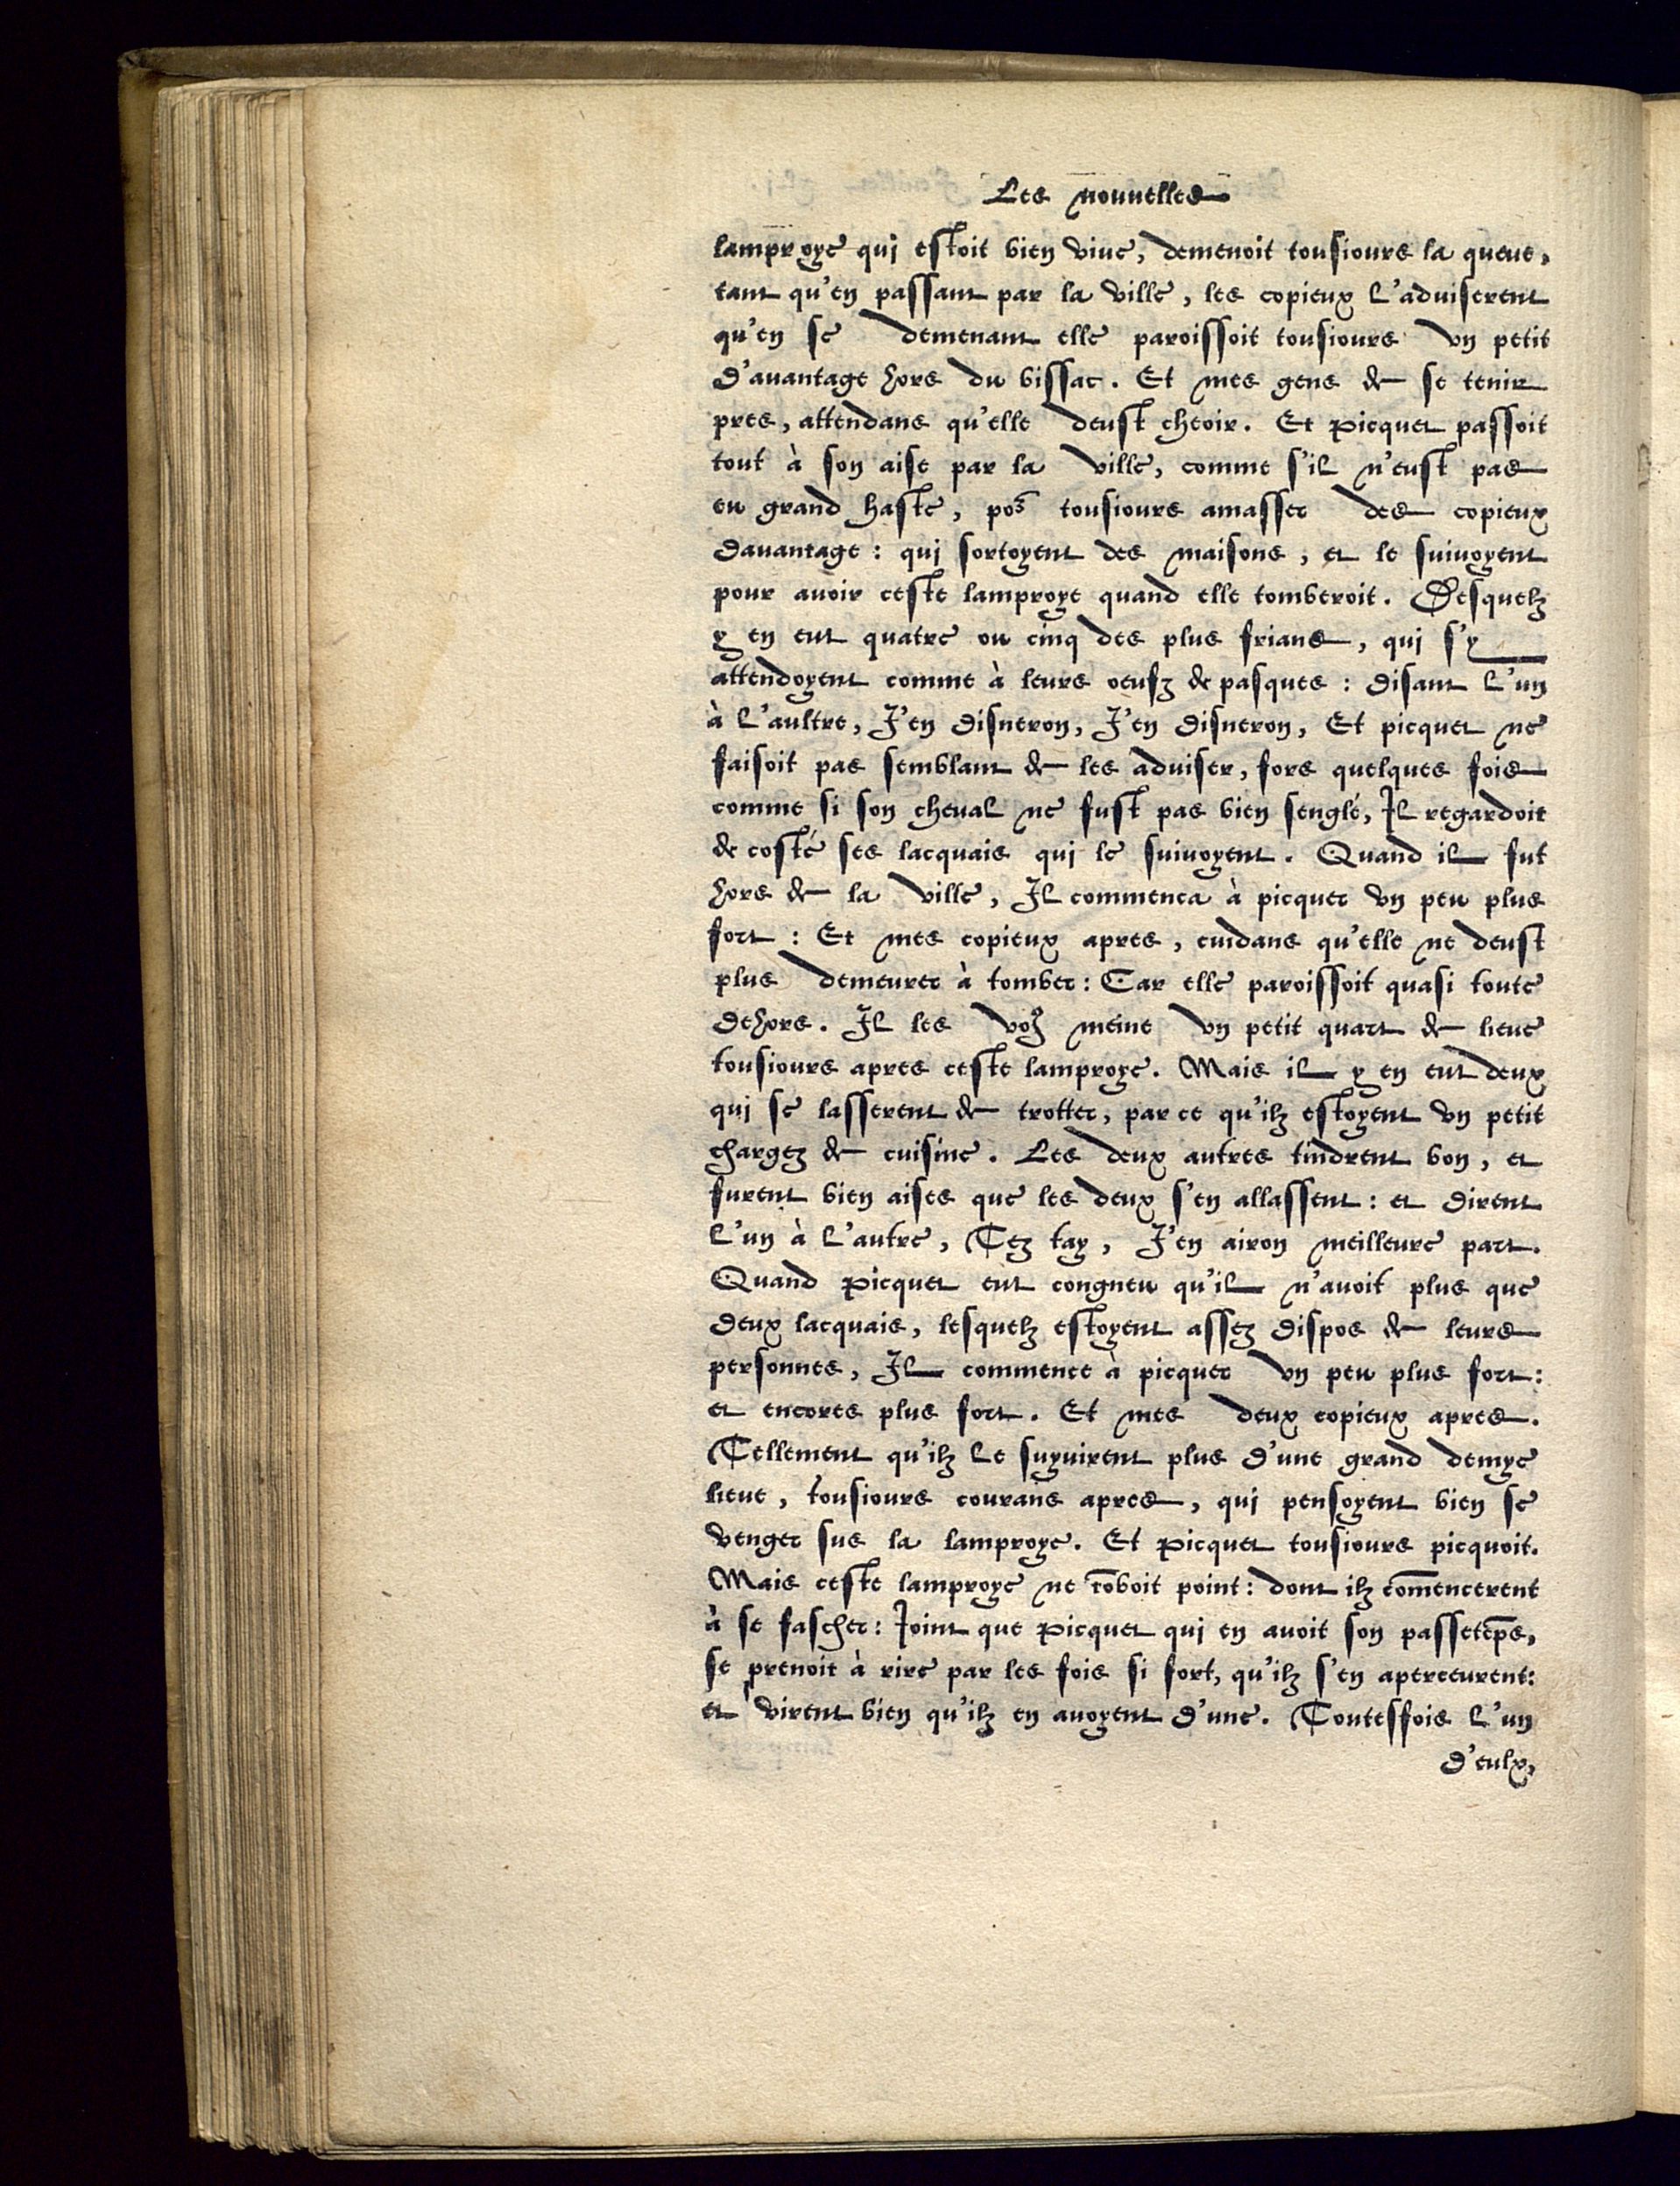 Les nouuelles
lamproye qui estoit bien viue, demenoit tousiours la queue,
tant qu'en passant par la ville, les copieux l'aduiserent
qu'en se demenant elle paroissoit tousiours vn petit
d'auantage hors du bissac. Et mes gens de se tenir
pres, attendans qu'elle deust cheoir. Et Picquet passoit
tout à son aise par la ville, comme s'il n'eust pas
eu grand haste, po᷒ tousiours amasser des copieux
dauantage : qui sortoyent des maisons, et le suiuoyent
pour auoir ceste lamproye quand elle tomberoit. Desquelz
y en eut quatre ou cinq des plus frians, qui s'y
attendoyent comme à leurs oeufz de pasques : disant l'un
à l'aultre, J'en disneron, J'en disneron, Et picquet ne
faisoit pas semblant de les aduiser, fors quelques fois
comme si son cheual ne fust pas bien senglé, Il regardoit
de costé ses lacquais qui le suiuoyent. Quand il fut
hors de la ville, Il commenca à picquer vn peu plus
fort : Et mes copieux apres, cuidans qu'elle ne deust
plus demeurer à tomber : Car elle paroissoit quasi toute
dehors. Il les voꝰ meine vn petit quart de lieue
tousiours apres ceste lamproye. Mais il y en eut deux
qui se lasserent de trotter, par ce qu'ilz estoyent vn petit
chargez de cuisine. Les deux autres tindrent bon, et
furent bien aises que les deux s'en allassent : et dirent
l'un à l'autre, Tez tay, J'en airon meilleure part.
Quand Picquet eut congneu qu'il n'auoit plus que
deux lacquais, lesquelz estoyent assez dispos de leurs
personnes, Il commence à picquer vn peu plus fort :
et encores plus fort. Et mes deux copieux apres.
Tellement qu'ilz le suyuirent plus d'une grand demye
lieue, tousiours courans apres, qui pensoyent bien se
venger sus la lamproye. Et Picquet tousiours picquoit.
Mais ceste lamproye ne tōboit point : dont ilz com̄encerent
à se fascher : Joint que Picquet qui en auoit son passetēps,
se prenoit à rire par les fois si fort, qu'ilz s'en aperceurent :
et virent bien qu'ilz en auoyent d'une. Toutesfois l'un
d'eulx,